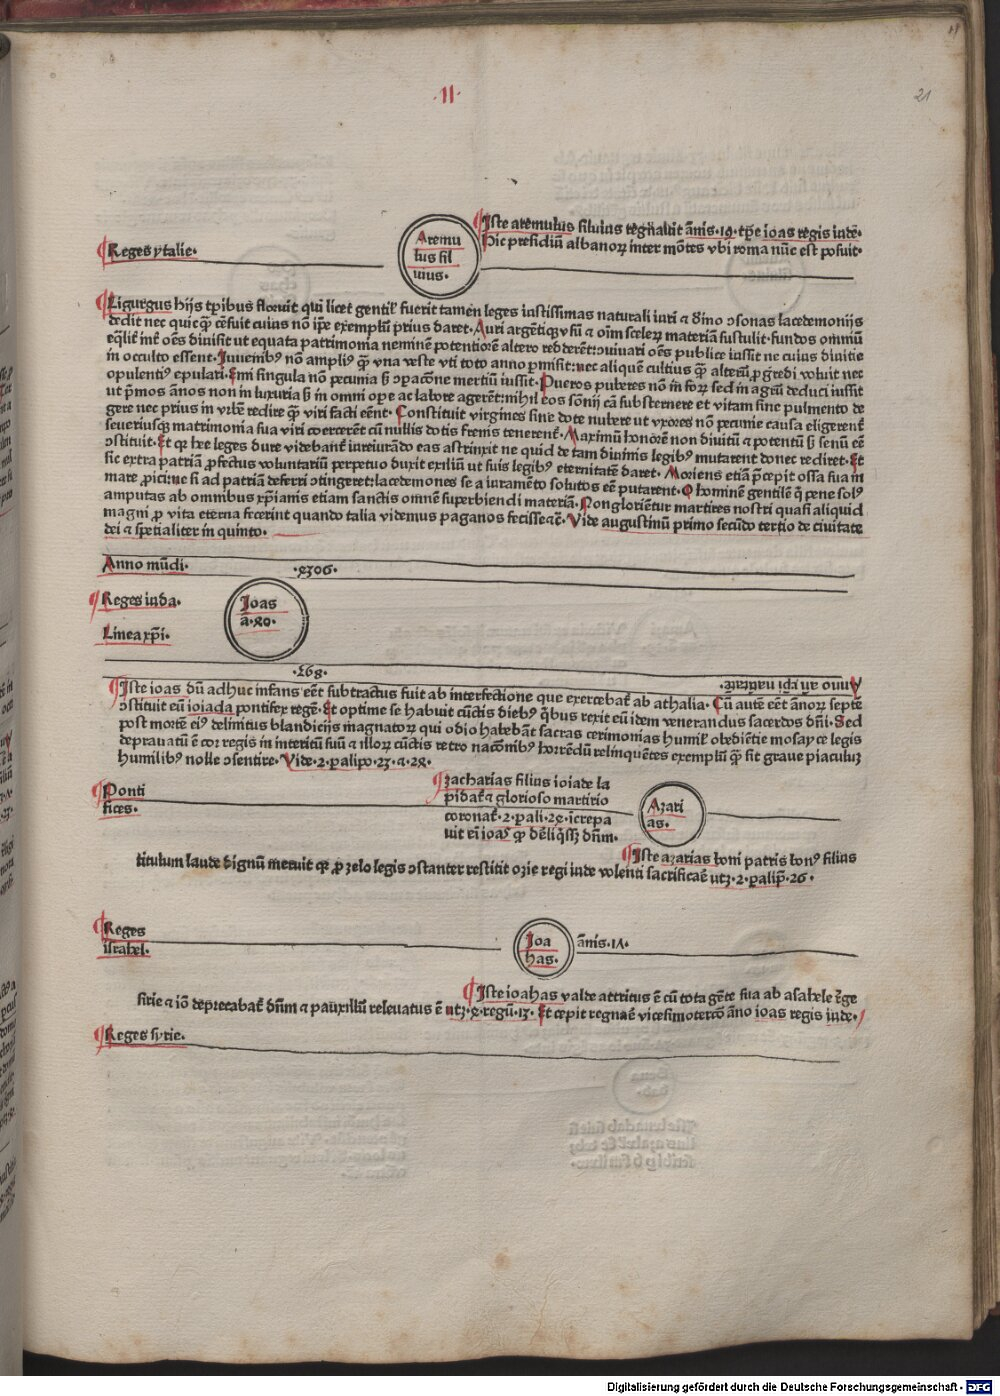 ·II·
21
Reges ytalie·
Aremu
lus sil
uius·
Iste aremulus siluius regnauit ānis·19·tp̄e ioas regis iude·
Hic presidiū albanoꝝ inter mōtes vbi roma nūc est posuit·
Ligurgus hijs tpībus floruit qui licet gentiƚ fuerit tamen leges iustissimas naturali iuri ⁊ diuino ↄsonas lacedemonijs
dedit nec quicq̄ cēsuit cuius nō ip̄e exemplū prius daret·Auri argētiqꝫ vsū ⁊ oīm sceleꝝ materiam sustulit·fundos omniū
eq̄liƚ int̄ oēs diuisit ut equata patrimonia neminē potentiorē altero redderēt:ↄuiuari oēs publice iussit ne cuius diuitie
in occulto essent·Iuuenibꝰ nō ampliꝰ q̄ vna veste vti toto anno p̄misit:nec aliquē cultius q̄ alterū ꝓgredi voluit nec
opulentiꝰ epulari·Emi singula nō pecunia sꝫ ↄpacōne mertiū iussit·Pueros puberes nō in foꝝ sed in agrū deduci iussit
ut p̄mos ānos non in luxuria sꝫ in omni ope ac labore agerēt:nihil eos sōnij cā substernere et vitam sine pulmento de
gere nec prius in vrbē redire q̄ viri facti eēnt·Constituit virgines sine dote nubere ut vxores nō pecunie causa eligerent̄
seueriusqꝫ matrimonia sua viri coercerēt cū nullis dotis frenis tenerent̄·Maximū honorē non diuitū ⁊ potentū sꝫ senū eē
ↄstituit·Et qꝛ hee leges dure videbant̄ iureiurādo eas astrinxit ne quid de tam diuinis legibꝰ mutarent donec rediret·Et
sic extra patriā ꝓfectus voluntariū perpetuo duxit exiliū ut suis legibꝰ eternitatē daret·Moriens etiā p̄cepit ossa sua in
mare ꝓici:ne si ad patriā deferri ↄtingeret:lacedemones se a iuramēto solutos eē putarent·O hominē gentilē q̄ pene solꝰ
amputas ab omnibus xp̄ianis etiam sanctis omnē superbiendi materiā·Non gloriēntur martires nostri quasi aliquid
magni ꝓ vita eterna fecerint quando talia videmus paganos fecisse ⁊ē·Vide augustinū primo secūdo tertio de ciuitate
dei ⁊ spetialiter in quinto·
Anno mūdi·
·4306·
Reges iuda·
Linea xp̄i·
Ioas
ā·40·
·868·
Anno an̄ xp̄i natiuitatē·
Iste ioas dū adhuc infans eēt subtractus fuit ab interfectione que exercebat̄ ab athalia·Cū autē eēt ānorꝝ septē
ↄstituit eū ioiada pontifex regē·Et optime se habuit cūctis diebꝰ q̄bus rexit eū idem venerandus sacerdos dn̄i·Sed
post mortē eiꝰ delinitus blandicijs magnatoꝝ qui odio habebāt sacras cerimonias humiƚr obediētie mosayce legis
deprauatū ē cor regis in interitū suū ⁊ illoꝝ cūctis retro nacōnibꝰ horrēdū relinquētes exemplū q̄ sit graue piaculuꝫ
humilibꝰ nolle ↄsentire·Vide·2·palipo·23·⁊·24·
Ponti
fices·
zacharias filius ioiade la
pidat̄ ⁊ glorioso martirio
coronat̄·2·pali·24·īcrepa
uit eī ioaꝫ qꝛ dēliq̄sꝫ dn̄m·
Azari
as·
Iste azarias boni patris bonꝰ filius
titulum laude dignū meruit qꝛ ꝓ zelo legis ↄstanter restitit ozie regi iude volenti sacrificaē utꝫ·2·palip̄·26·
Reges
israhel·
Ioa
has·
ānis·17·
Iste ioahas valde attritus ē cū tota gēte sua ab asahele rēge
sirie ⁊ iō deprecabat̄ dn̄m ⁊ pauxillū releuatus ē utꝫ·4·regū·13·Et cepit regnaē vicesimotercō āno ioas regis iude·
Reges syrie·
Digitalisierung gefördert durch die Deutsche Forschungsgemeinschaft · DFG